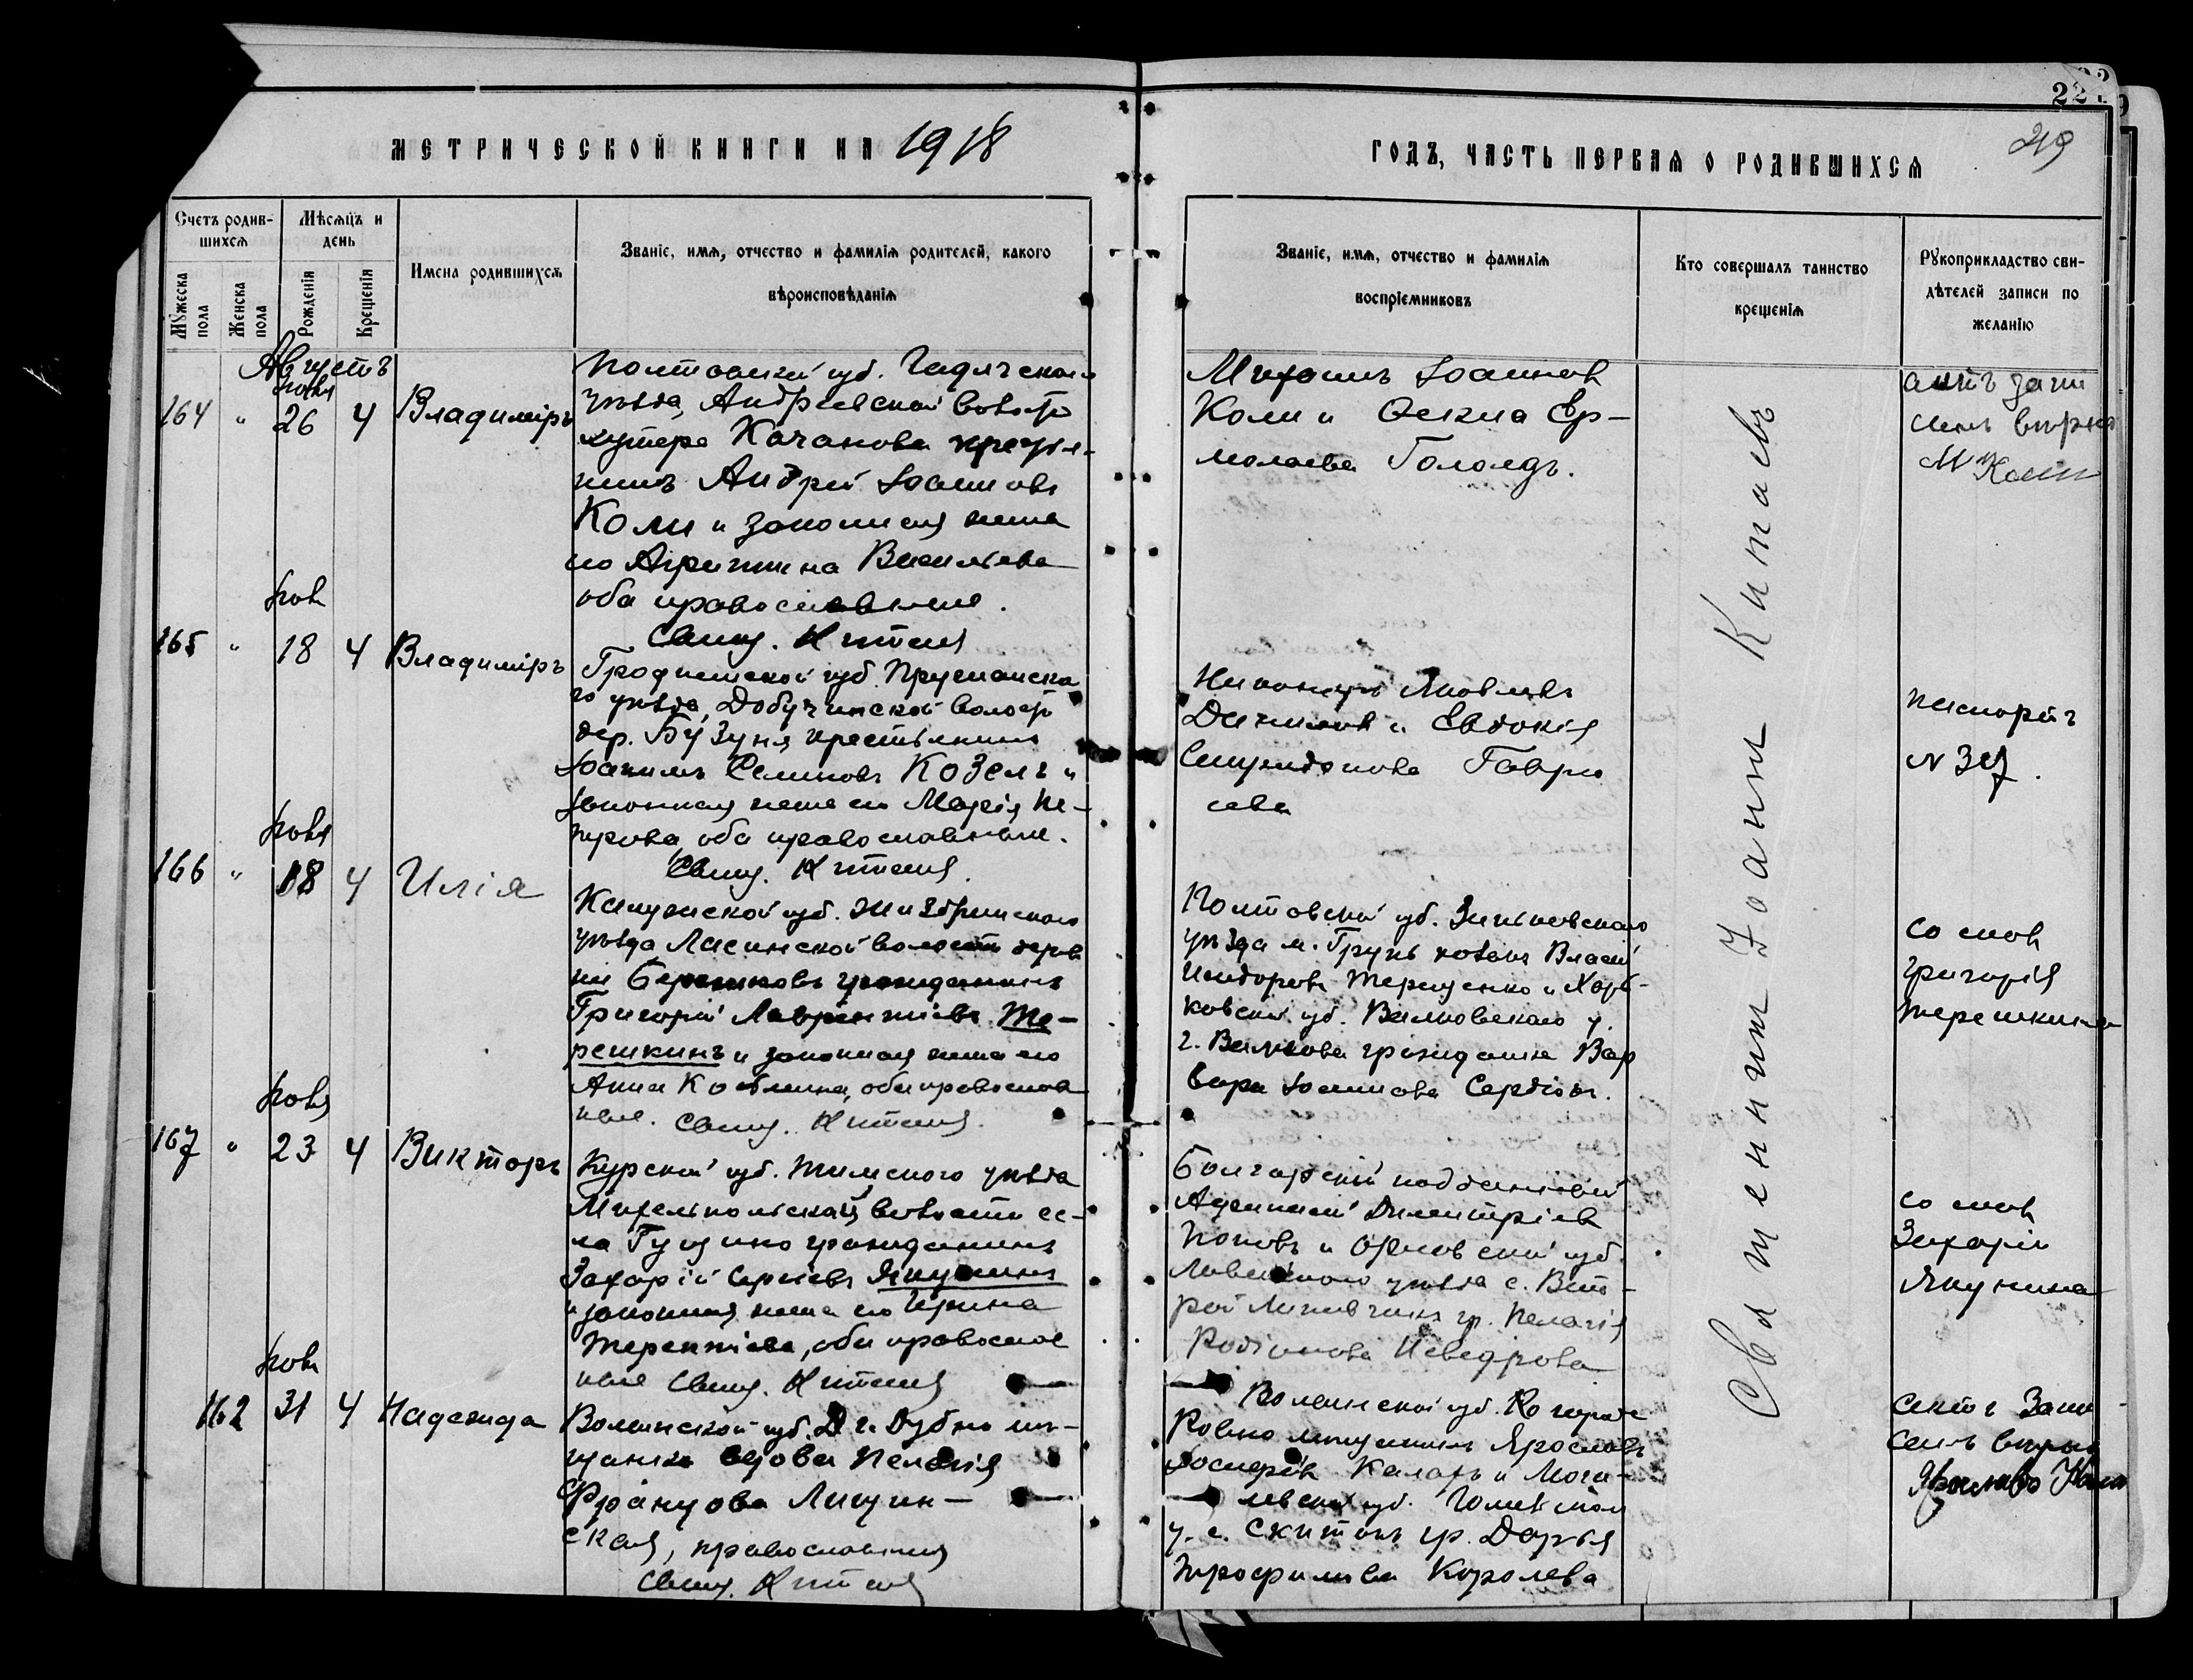 22
219
МЕТРИЧЕСКОЙ КНИГИ НА 1918
ГОДЪ, ЧАСТЬ ПЕРВАЯ О РОДИВШИХСЯ
Счетъ родив-
шихся
Мѣсяцъ и
день
Мужеска
пола
Женска
пола
Рожденія
Крещенія
Имена родившихся
Званіе, имя, отчество и фамилія родителей, какого
вѣроисповѣданія
Званіе, имя, отчество и фамилія
воспріемниковъ
Кто совершалъ таинство
крещенія
Рукоприкладство сви-
дѣтелей записи по
желанію
Августъ
164 " 26 4 Владиміръ
Полтавской губ. Гадячскаго
уѣзда, Андреевской волости
хутора Качанова
Андрей Іоанновъ
Коли и законная жена
его Агрипина Васильева
оба православные.
Свящ. Китаев
Михаилъ Іоаннов
Коли и Ер-
молаева Голодъ.
актъ запи
санъ вѣрно
М Коли
165 " 18 4 Владиміръ
Гродненской губ. Пружанска
го уѣзда, Добучинской волости
дер. Бузуня крестьянинъ
Іоакимъ Семиновъ Козелъ и
законная жена его Марія Пе-
трова, оба православные.
Свящ. Китаев.
Яковлевъ
Данилов и Евдокія
Спиридонова Гаври
лова
паспортъ
N 37.
166 " 18 4 Илія
Калужской губ. Жиздринскаго
уѣзда Ласинской волости дерев
ни гражданинъ
Григорій Лаврентіевъ Те-
решкинъ и законная жена его
Анна оба православ
ные. Свящ. Китаев.
Полтавской губ. Зиньковскаго
уѣзда м. Грунь козакъ Власій
Исидоровъ Терещенко и Харь-
ковской губ. Валковскаго у.
г. Валкова гражданка Вар
вара Іоаннова Сердюкъ.
со слов
Григорія
Терешкина
167 " 23 4 Викторъ
Курской губ. Тимскаго уѣзда
Михельпольской волости се-
ла гражданинъ
Захарій Сергіевъ Якунинъ
и законная жена его Ирина
Терентіева, оба православ
ные Свящ. Китаев
Болгарскій подданный
Димитріев
Поповъ и Орловской губ.
Ливенского уѣзда с. Вто-
рой Липовчикъ гр. Пелагія
Родіонова Неведрова
со слов
Захарія
Якунина
162 31 4 Надежда
Волынской губ. г. Дубно мѣ-
щанка вдова Пелагія
Францова Лищин-
ская, православная
Свящ. Китаев
Волынской губ. города
Ровно мѣщанинъ Ярославъ
Іосифов и Моги-
левской губ. Гомельскаго
у. с. Скитокъ гр. Дарья
Трофимова Королева
актъ запи
санъ вѣрно
Ярославъ
Священникъ Іоаннъ Китаевъ